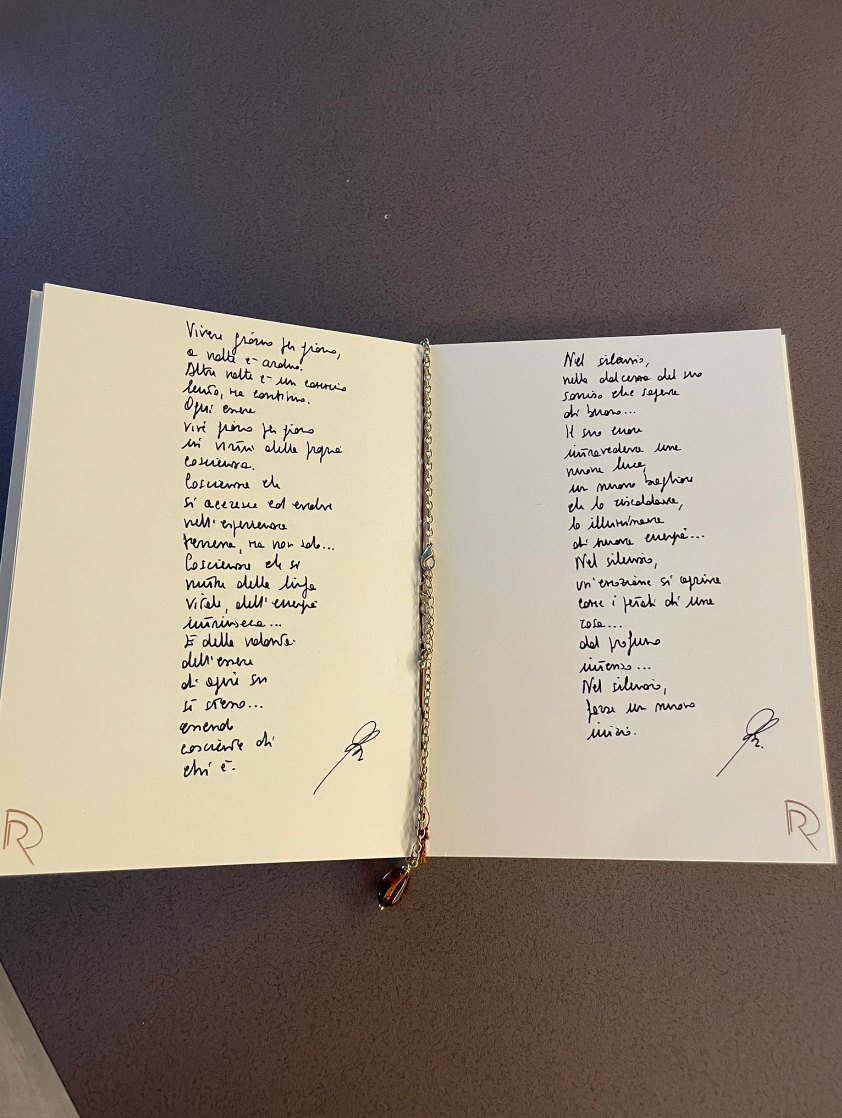 Vivere giorno per giorno,
a volte è arduo.
Altre volte è un cammino
lento, ma continuo.
Ogni essere
vive giorno per giorno
in virtù della propria
coscienza.
Coscienza che
si accresce ed evolve
nell'esperienza
terrena, ma non solo...
Coscienza che si
nutre della linfa
vitale, dell'energia
intrinseca...
E della volontà
dell'essere
di ogni
sé stesso...
essendo
cosciente di
chi è.
R
Nel silenzio,
nella dolcezza del suo
sorriso che sapeva
di buono...
Il suo cuore
intravedeva una
nuova luce,
un nuovo bagliore
che lo riscaldava,
lo illuminava
di nuova energia...
Nel silenzio,
un'emozione si apriva
come i petali di una
rosa...
dal profumo
intenso...
Nel silenzio,
forse un nuovo
inizio.
R